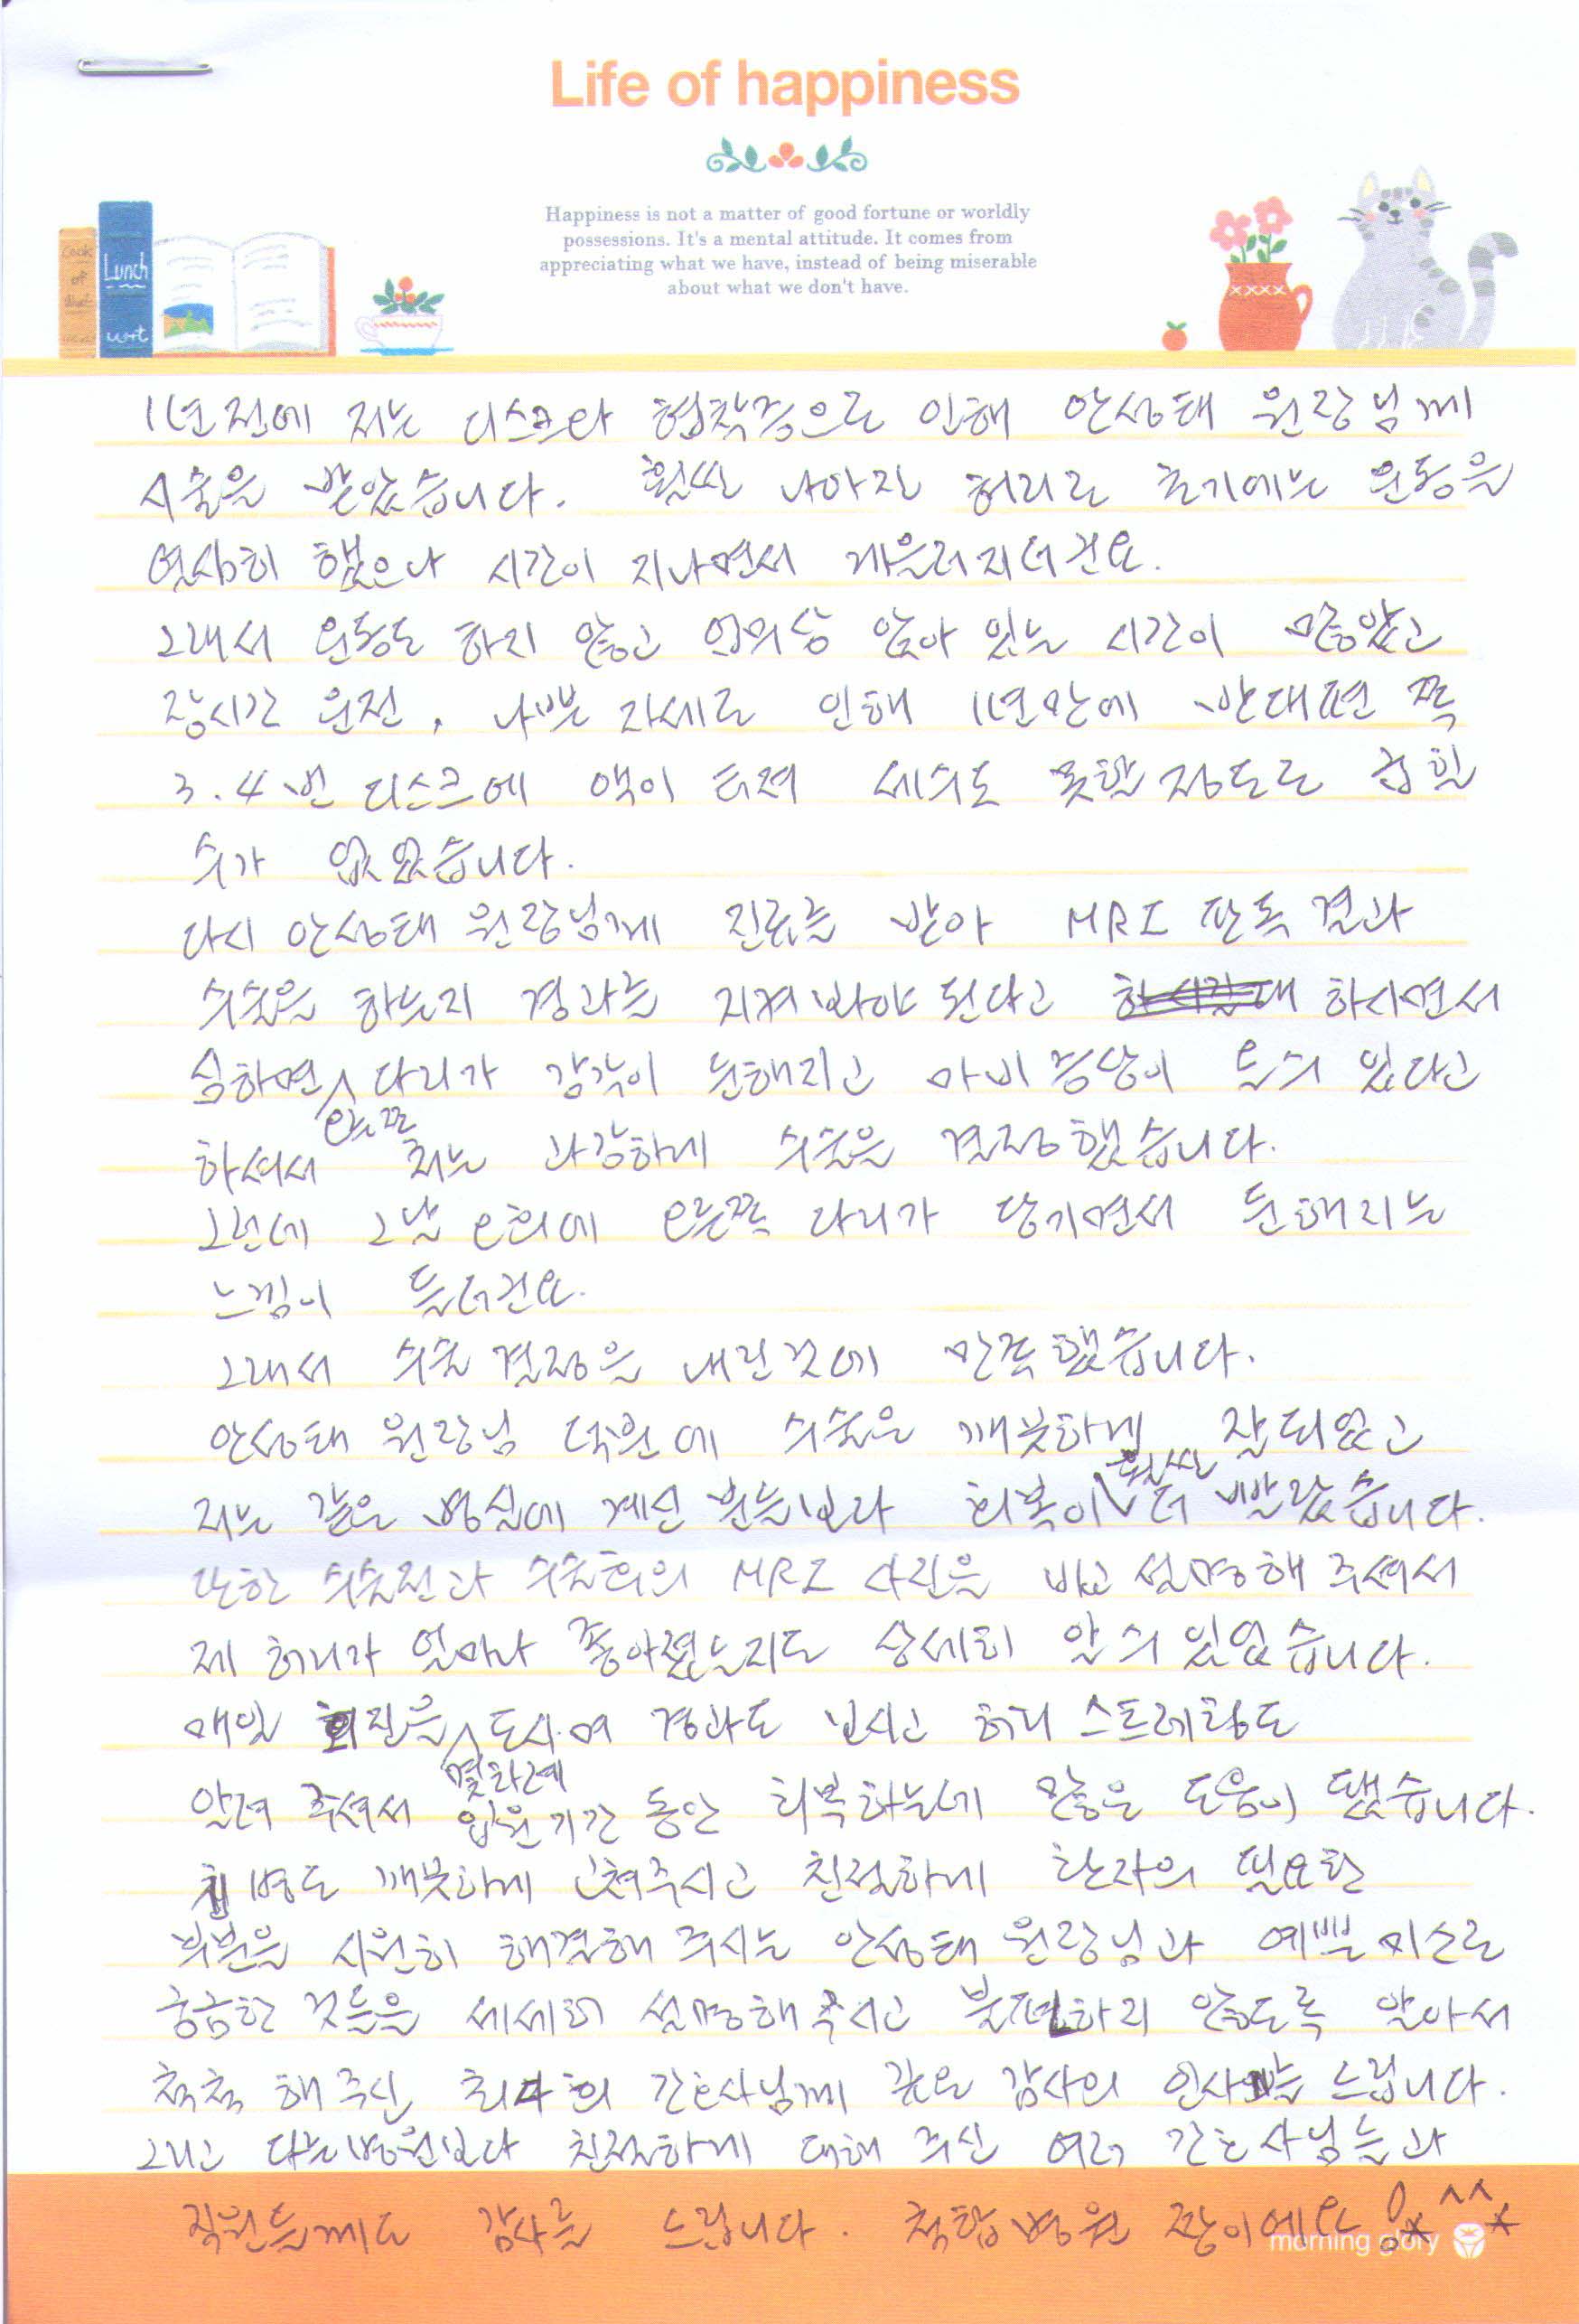 Life of happiness
Happiness is not a matter of good fortune or worldly
possessions. It's a mental attitude. It comes from
appreciating what we have, instead of being miserable
about what we don't have.
Lunch
1년전에 저는 디스크와 협착증으로 인해 안상태 원장님께
시술을 받았습니다. 훨씬 나아진 허리로 초기에는 운동을
열심히 했으나 시간이 지나면서 게을러지더군요.
그래서 운동도 하지 않고 의외로 앉아 있는 시간이 많았고
장시간 운전, 나쁜 자세로 인해 1년만에 반대편 쪽
3.4번 디스크에 액이 터져 세수도 못할 정도로 굽힐
수가 없었습니다.
다시 안상태 원장님께 진료를 받아 MRI 판독 결과
수술을 하는지 경과를 지켜봐야 된다고 하시면서
심하면 왼쪽 다리가 감각이 둔해지고 마비증상이 올수 있다고
하셔서 저는 과감하게 수술을 결정했습니다.
그런데 그날 오후에 왼쪽 다리가 당기면서 둔해지는
느낌이 들더군요.
그래서 수술 결정을 내린것에 만족했습니다.
안상태 원장님 덕분에 수술은 깨끗하게 잘되었고
저는 같은 병실에 계신 분들보다 회복이 훨씬 더 빨랐습니다.
또한 수술전과 수술후의 MRI 사진을 보고 설명해 주셔서
제 허리가 얼마나 좋아졌는지도 상세히 알수 있었습니다.
매일 회진을 몇차례 도시며 경과도 보시고 허리 스트레칭도
알려 주셔서 입원기간 동안 회복하는데 많은 도움이 됐습니다.
병도 깨끗하게 고쳐주시고 친절하게 환자의 필요한
부분을 시원히 해결해 주시는 안상태 원장님과 예쁜 미소로
궁금한 것들을 세세히 설명해주시고 불편하지 않도록 알아서
척척 해주신 간호사님께 깊은 감사의 인사말을 드립니다.
그리고 다른병원보다 친절하게 대해 주신 여러 간호사님들과
직원들께도 감사를 드립니다. 척탑병원 짱이에요! *^^*
morning glory